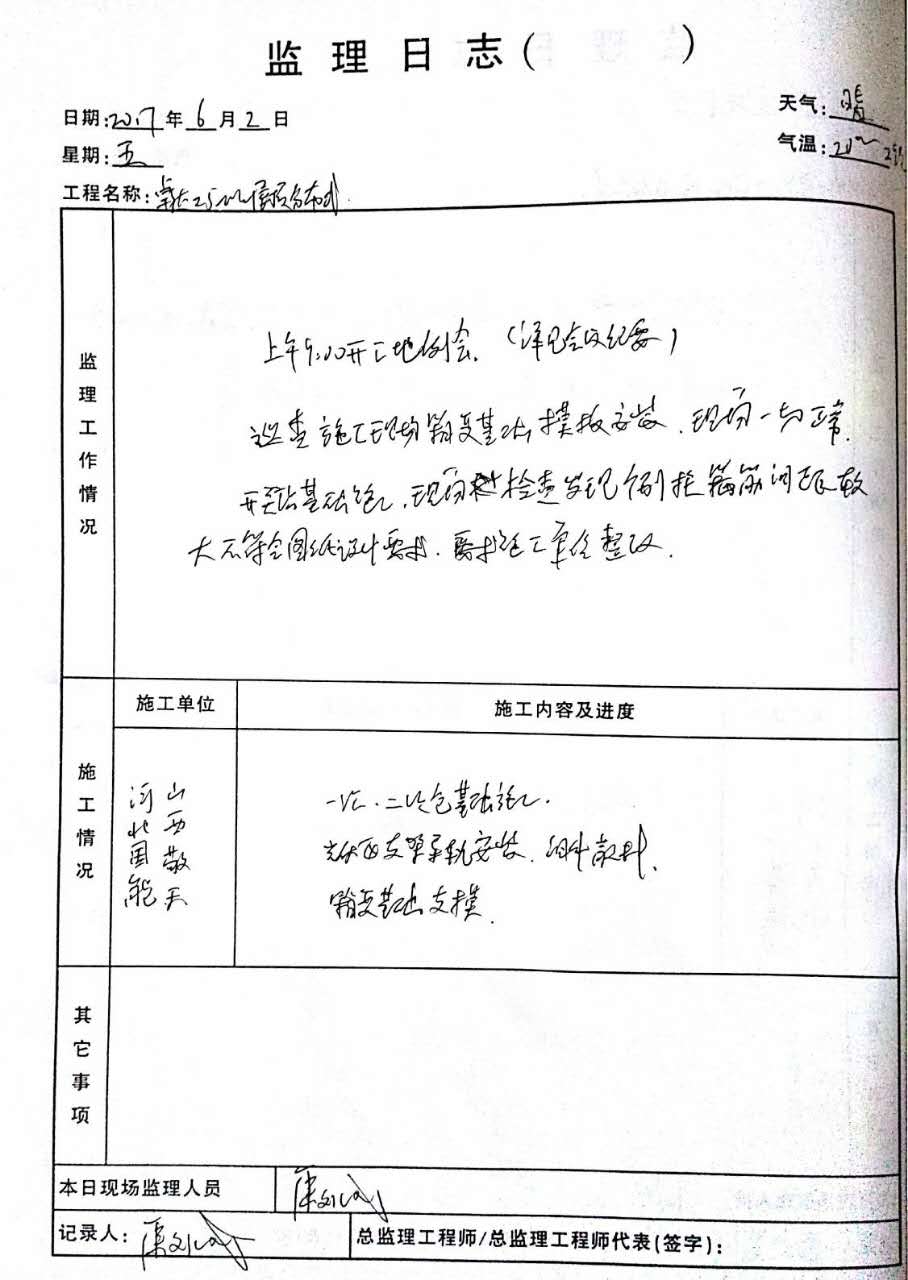 监理日志( )
日期:2017年6月2日
天气:晴
星期:五
气温:20~
工程名称:
监理工作情况
上午9:00开工地例会.(详见会议纪要)
巡查施工现场箱变基础模板安装.现场一切正常.
开基础施工.现场检查发现个别桩箍筋间距较
大不符合图纸设计要求.要求施工单位整改.
施工情况
施工单位
施工内容及进度
山西敬天
河北国能
一、二基础施工.
光伏区支架导轨安装.散料.
箱变基础支模.
其它事项
本日现场监理人员
记录人:
总监理工程师/总监理工程师代表(签字):